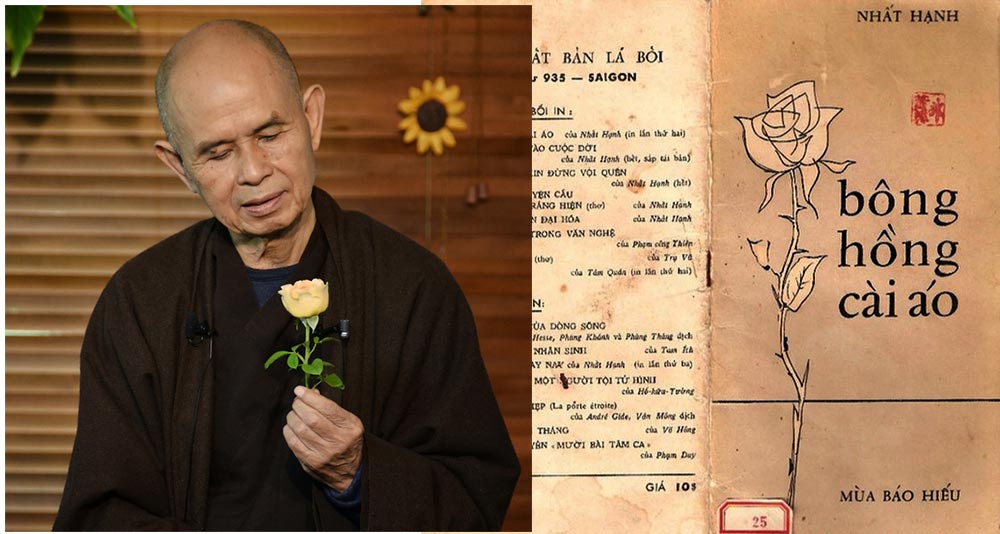 ẤT BẢN LÁ BỐI
935 — SAIGON
BỐI IN :
ÁO của Nhất Hạnh (in lần thứ hai)
ÀO CUỘC ĐỜI
của Nhất Hạnh (hết, sắp tái bản)
IN ĐỪNG VỘI QUÊN
của Nhất Hạnh (hết)
YỆN CẦU
RĂNG HIỆN (thơ) của Nhất Hạnh
N ĐẠI HÓA của Nhất Hạnh
TRONG VĂN NGHỆ
của Phạm công Thiện
(thơ) của Trụ Vũ
của Tâm Quán (in lần thứ hai)
N:
ÙA DÒNG SÔNG
Hesse, Phùng Khánh và Phùng Thăng dịch
NHÂN SINH của Tam Ích
AY NAY của Nhất Hạnh (in lần thứ ba)
MỘT NGƯỜI TỘI TỬ HÌNH
của Hồ-hữu-Tường
HẸP (La porte étroite)
của André Gide, Vân Mồng dịch
THÁNG của Võ Hồng
YỆN «MƯỜI BÀI TÂM CA»
của Phạm Duy
GIÁ 10$
NHẤT HẠNH
bông
hồng
cài áo
MÙA BÁO HIẾU
25